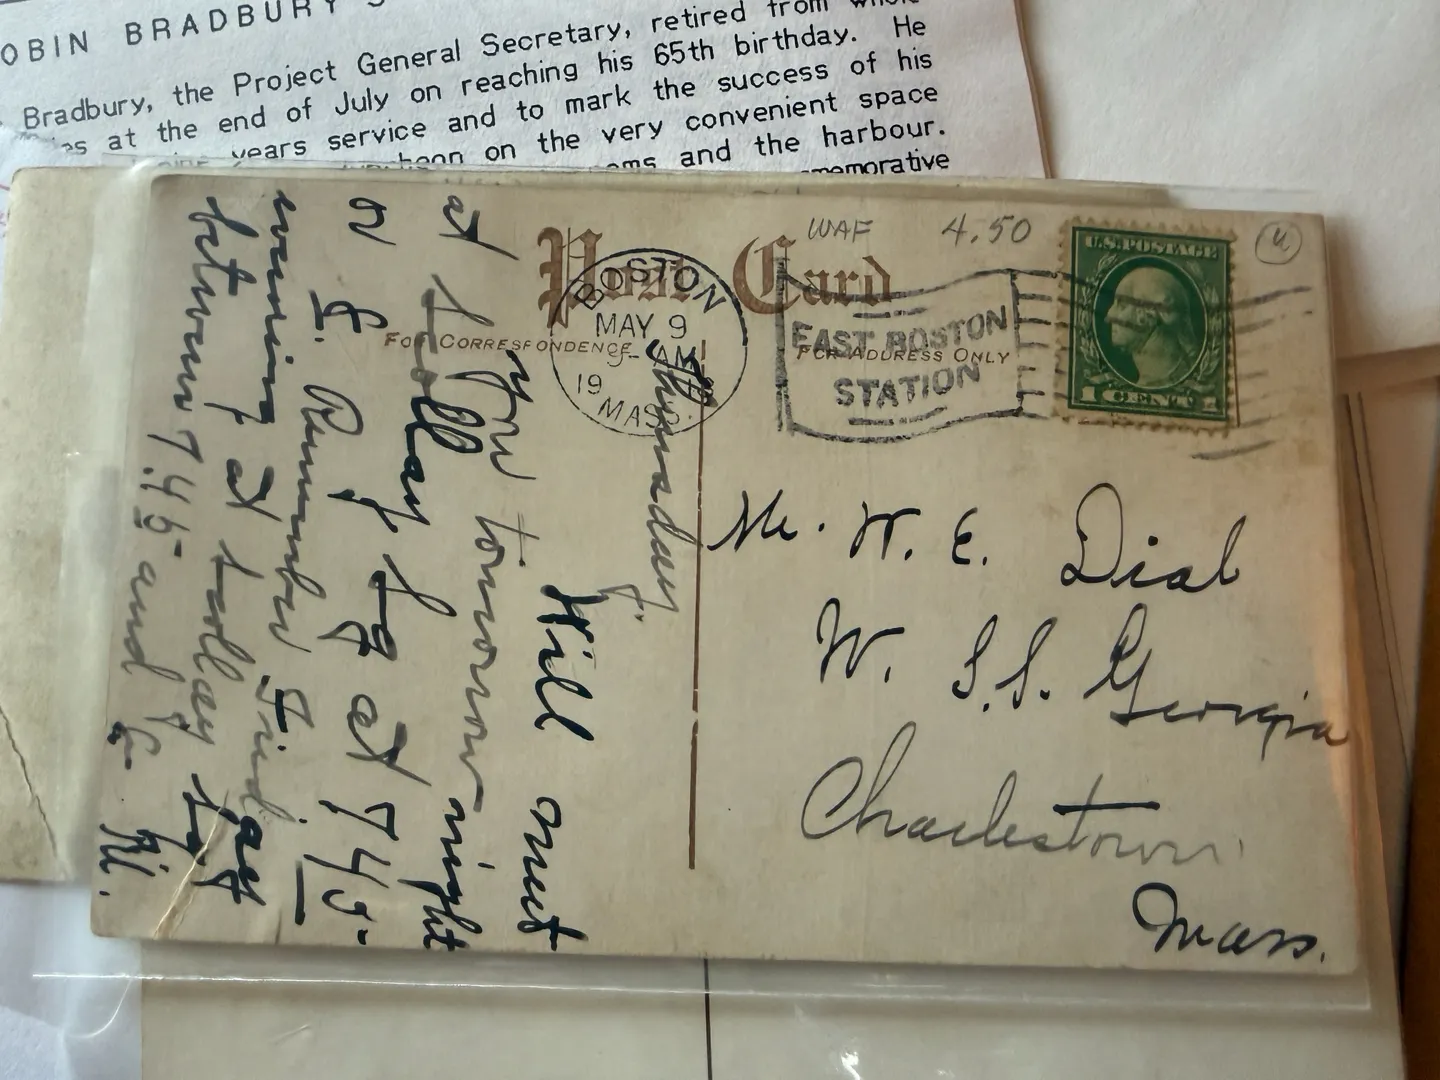 OBIN BRADBURY
Bradbury, the Project General Secretary, retired from
at the end of July on reaching his 65th birthday. He
years service and to mark the success of his
on the very convenient space
and the harbour.
Post Card
WAF 4.50
BOSTON
MAY 9
AM
19
MASS.
EAST BOSTON
STATION
U.S. POSTAGE
1 CENT 1
FOR CORRESPONDENCE
FOR ADDRESS ONLY
Thursday.
Will meet
you tomorrow night
at Trollay
or at 7 45-
E. Remember Friday
evening at trollay
between 7.45 and
Mr. W. E. Dial
W. S.S. Georgia
Charlestown
Mass.